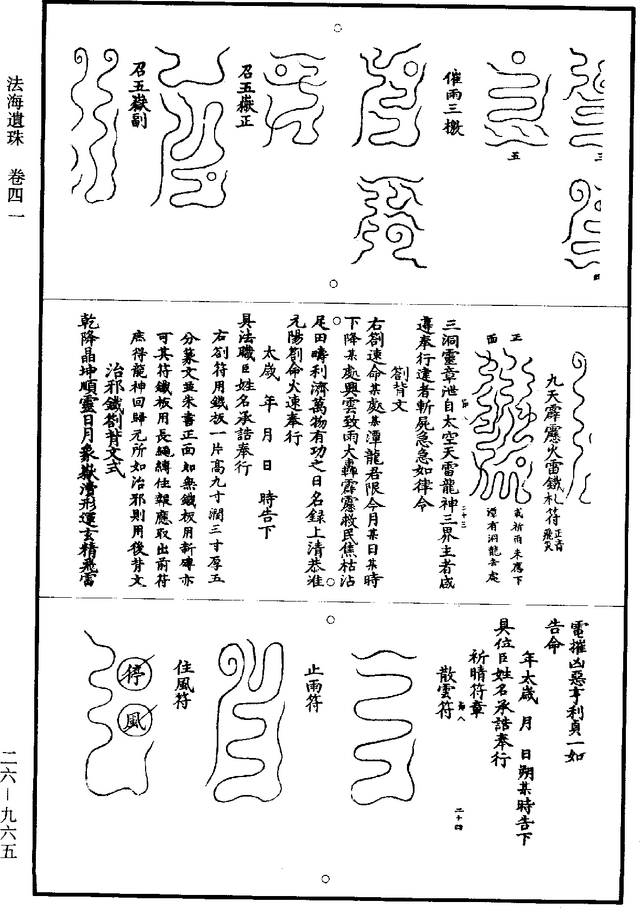 法海遺珠　卷四一
三
四
五
催雨三檄
召五嶽正
召五嶽副
九天霹靂火雷鐵札符
正面
三洞靈章泄自太空天雷龍神三界主者咸
遵奉行違者斬屍急急如律令
劄背文
右劄速命某處某潭龍君限今月某日某時
下降某處興雲致雨大轟霹靂救民焦枯沾
足田疇利濟萬物有功之日名錄上清恭準
元陽劄命火速奉行
太歲　年　月　日　時告下
具法職臣姓名承誥奉行
右劄符用鐵板一片高九寸濶三寸厚五
分篆文並朱書正面如無鐵板用新磚亦
可其符鐵板用長繩縛住報應取出前符
庶得龍神回歸元所如治邪則用後背文
治邪鐵劄背文式
乾降晶坤順靈日月象嶽瀆形運玄精飛雷
電摧凶惡亨利貞一如
告命
年太歲　月　日朔某時告下
具位臣姓名承誥奉行
祈晴符章
散雲符
二十四
止雨符
住風符
停
風
二六－九六五